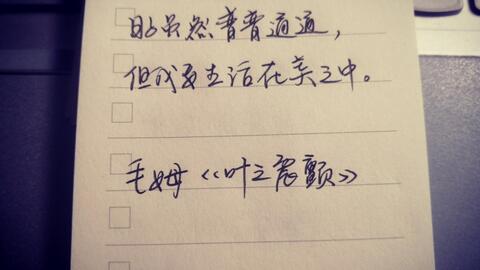 日子虽然普普通通，
但我要生活在美之中。
毛姆《叶之震颤》